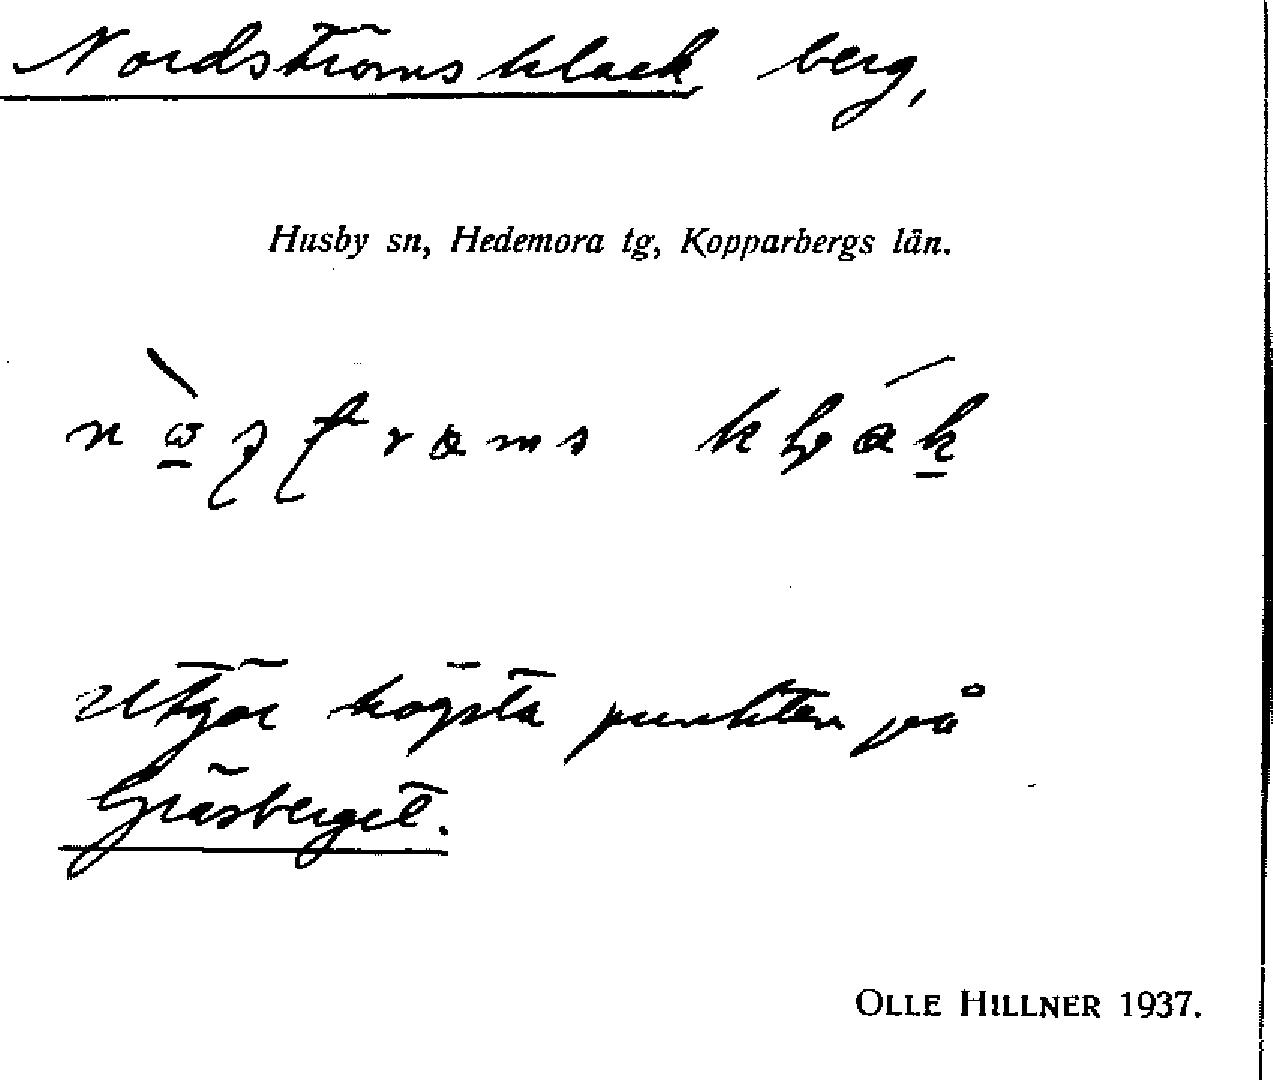 Nordströms klack berg,
Husby sn, Hedemora tg, Kopparbergs län.
Utgör högsta punkten på
Gräsberget.
OLLE HILLNER 1937.